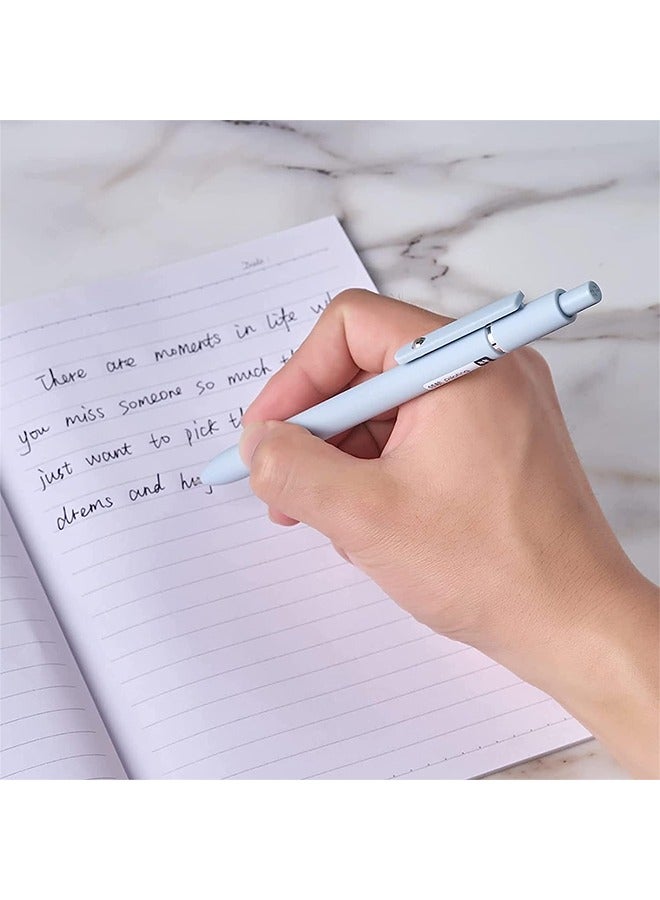 Date:
There are moments in life
you miss someone so much
just want to pick
drems and